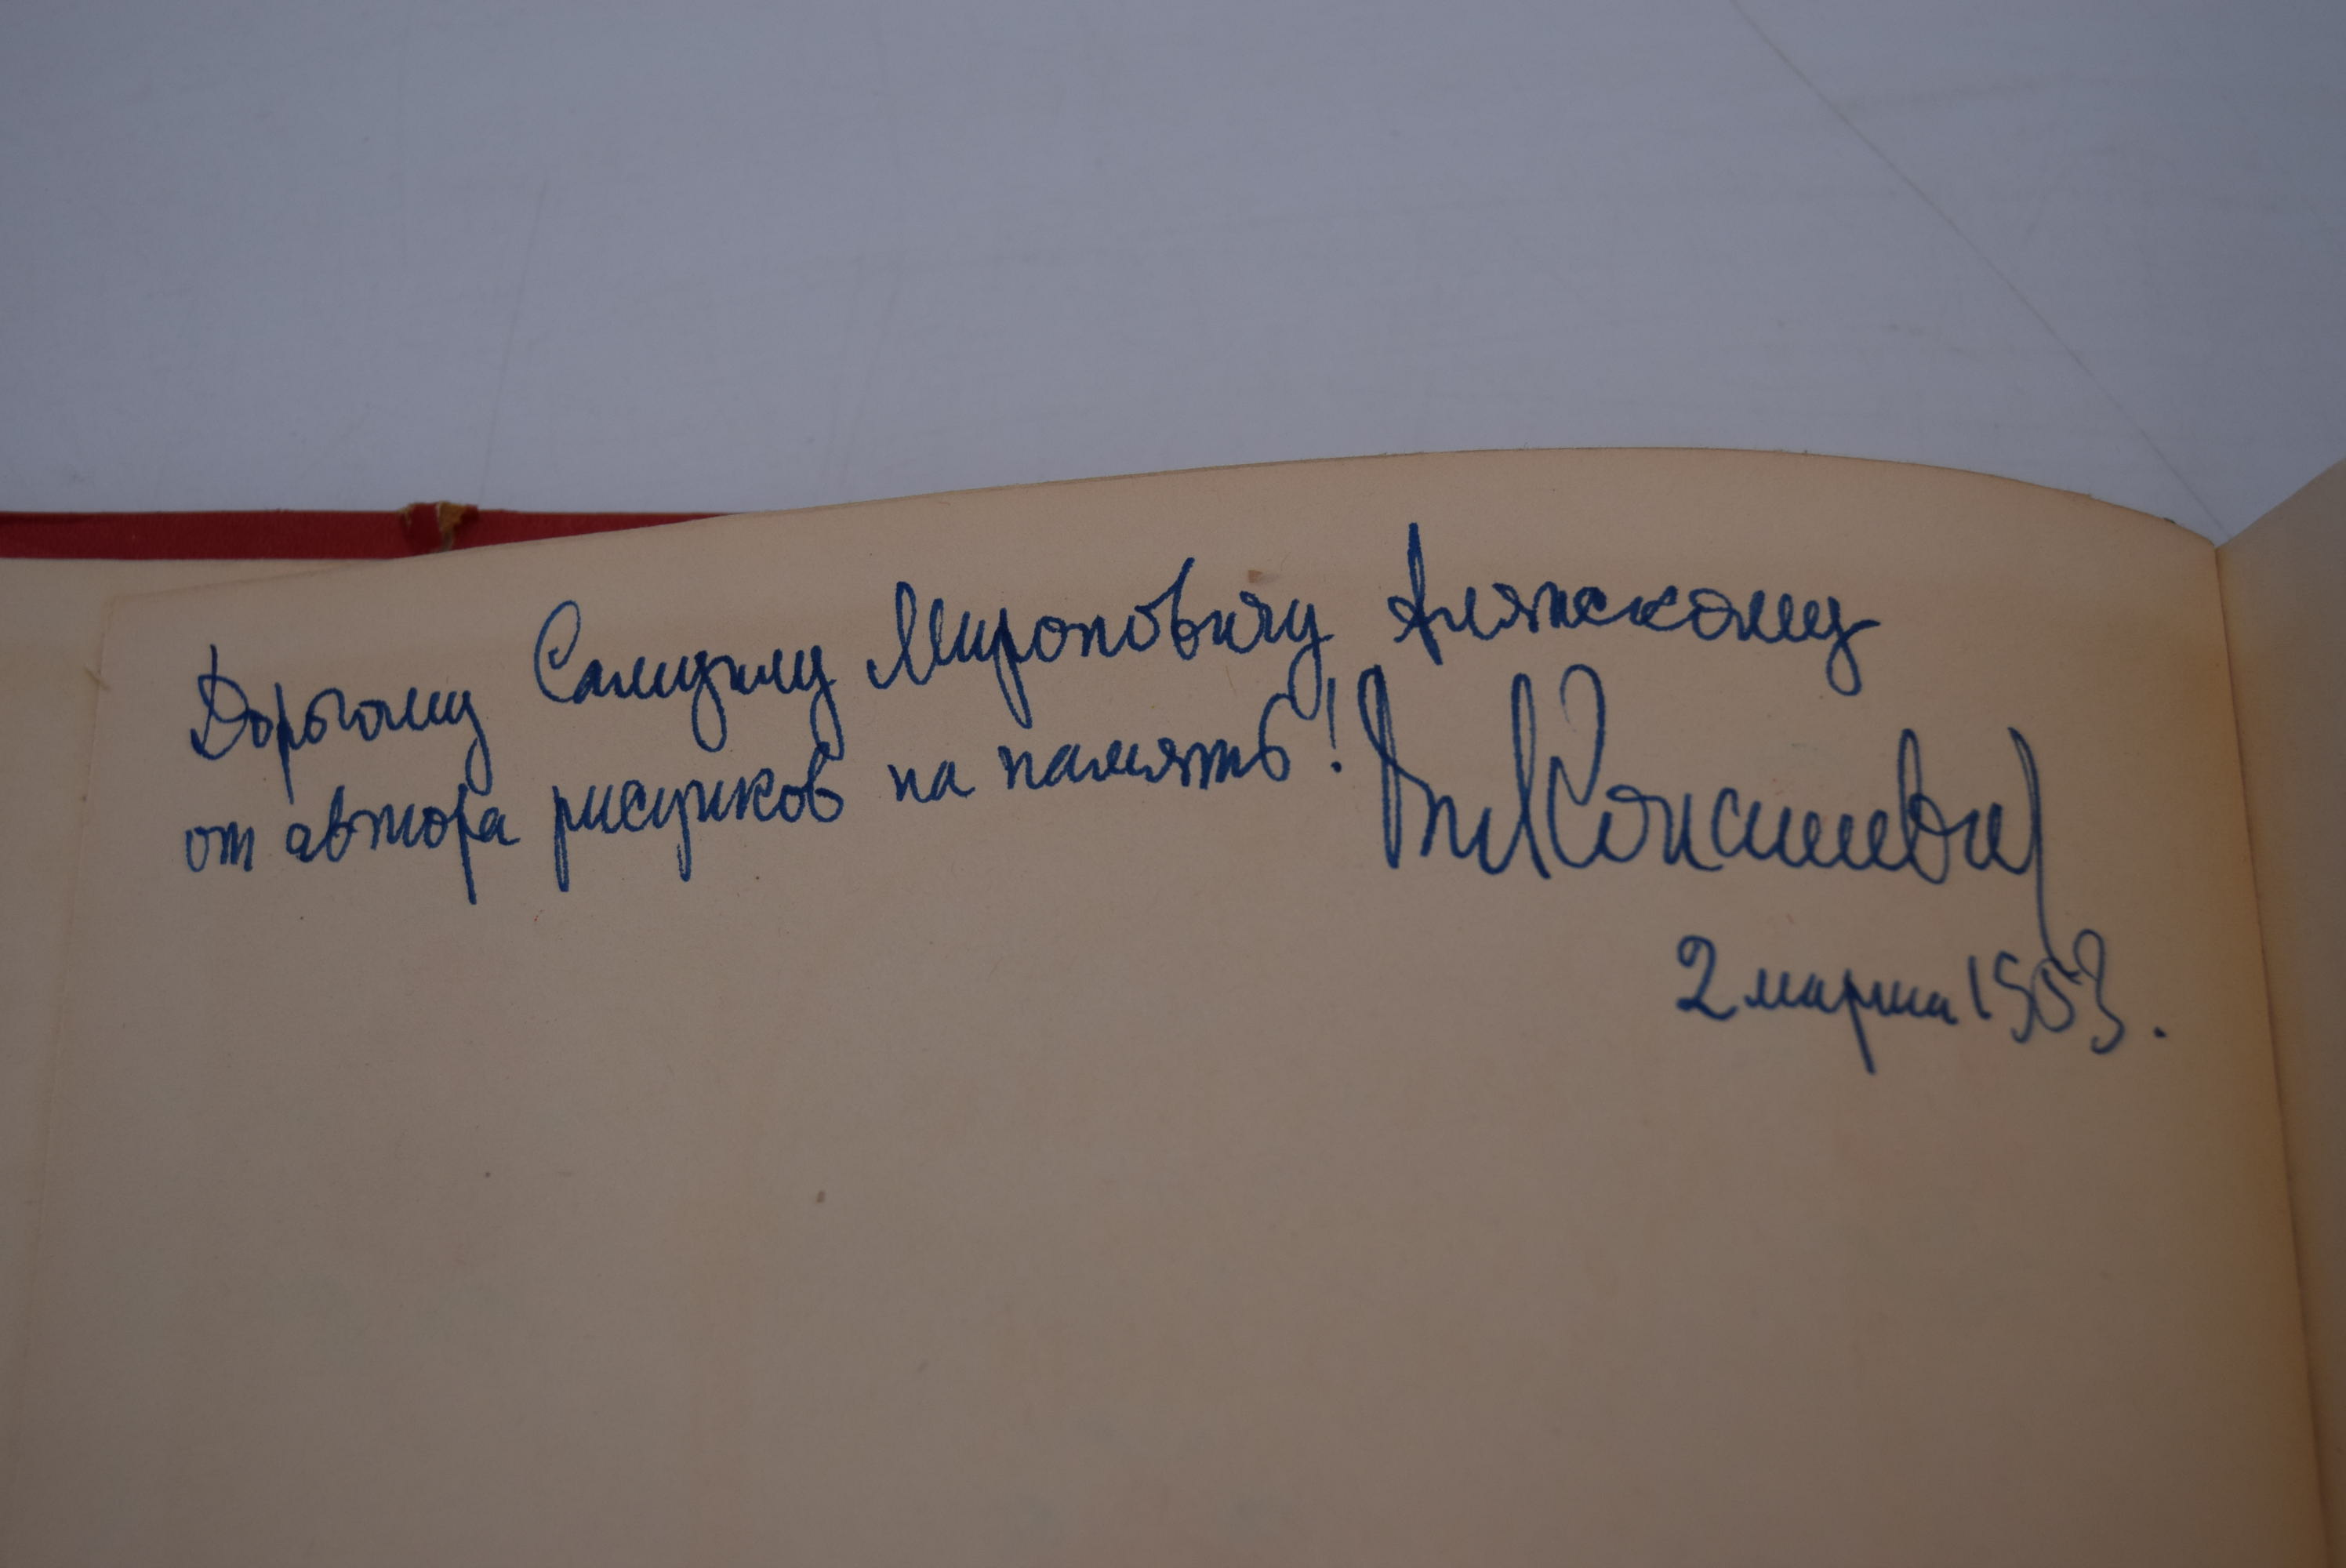 Дорогому Самуилу Мироновичу Алянскому
от автора рисунков на память! Вл Конашевич
2 марта 1953.